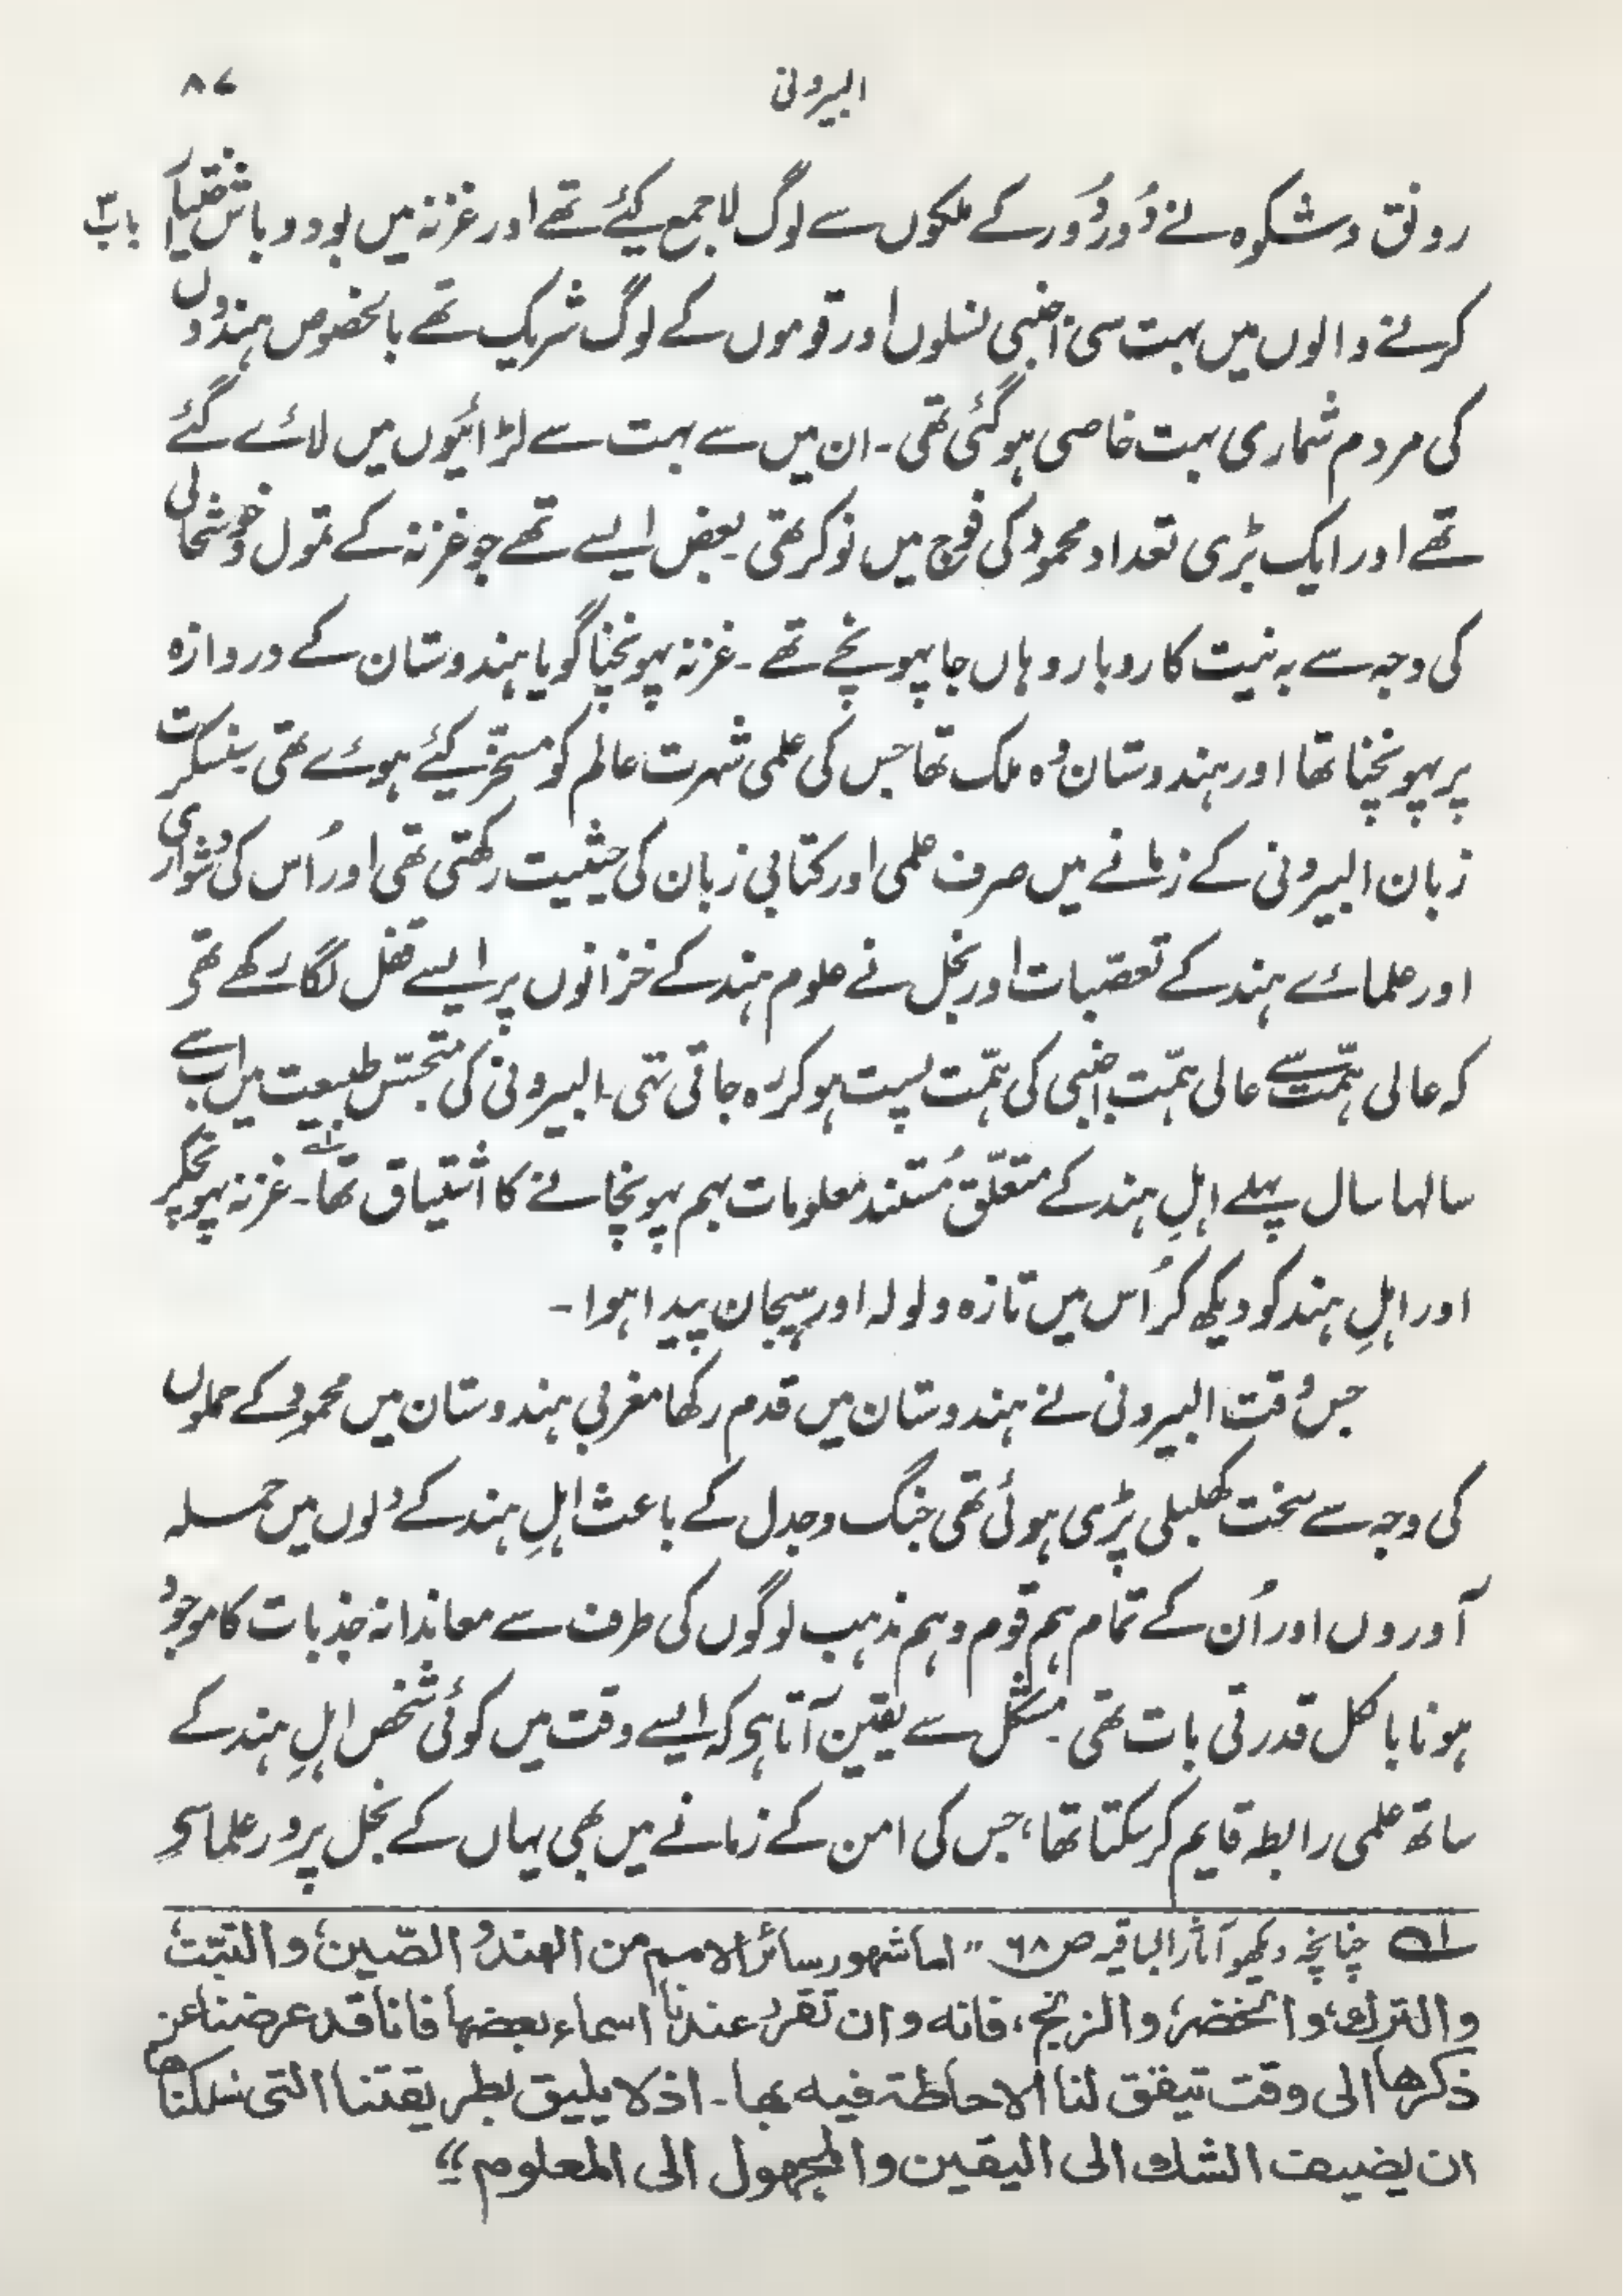 البیرونی ۸۷
رونق و شکوہ نے دُور دُور کے ملکوں سے لوگ لا جمع کیٔے تھے اور غزنہ میں بود و باش اختیار باب
کرنے والوں میں بہت سی اجنبی نسلوں اور قوموں کے لوگ شریک تھے بالخصوص ہندوؤں
کی مردم شماری بہت خاصی ہو گئی تھی۔ ان میں سے بہت سے لڑائیوں میں لائے گئے
تھے اور ایک بڑی تعداد محمود کی فوج میں نوکر تھی۔ بعض ایسے تھے جو غزنہ کے تمول و خوشحالی
کی وجہ سے بہ نیت کاروبار وہاں جا پہونچے تھے۔ غزنہ پہونچنا گویا ہندوستان کے دروازہ
پر پہونچنا تھا اور ہندوستان وُہ ملک تھا جس کی علمی شہرت عالم کو مسخّر کیٔے ہوئے تھی۔ سنسکرت
زبان البیرونی کے زمانے میں صرف علمی اور کتابی زبان کی حیثیت رکھتی تھی اور اُس کی دشواری
اور علمائے ہند کے تعصّبات اور بخل نے علوم ہند کے خزانوں پر ایسے قفل لگا رکھے تھی
کہ عالی ہمّت سے عالی ہمّت اجنبی کی ہمّت پست ہو کر رہ جاتی تھی۔ البیرونی کی متجسّس طبیعت میں اب سے
سالہا سال پہلے اہلِ ہند کے متعلّق مُستند معلومات بہم پہونچانے کا اشتیاق تھا۔ لہ غزنہ پہونچکر
اور اہلِ ہند کو دیکھ کر اُس میں تازہ ولولہ اور ہیجان پیدا ہوا۔
جس وقت البیرونی نے ہندوستان میں قدم رکھا مغربی ہندوستان میں محمود کے حملوں
کی وجہ سے سخت کھلبلی پڑی ہوئی تھی جنگ و جدل کے باعث اہلِ ہند کے دلوں میں حملہ
آوروں اور اُن کے تمام ہم قوم و ہم مذہب لوگوں کی طرف سے معاندانہ جذبات کا موجود
ہونا بالکل قدرتی بات تھی۔ مشکل سے یقین آتا ہی کہ ایسے وقت میں کوئی شخص اہلِ ہند کے
ساتھ علمی رابطہ قایم کر سکتا تھا، جس کی امن کے زمانے میں بھی یہاں کے بخل پرور علما سے
لہ چنانچہ دیکھو آثار الباقیہ ص ۶۸ "اما شہور سائر الامم من الھند، و الصّین، و التبّت،
و الترک، و الخضر، و الزنج، فانه و ان تقرر عندنا اسماء بعضہا فانا قد عرضنا عن
ذکرھا الی وقت تیفق لنا الاحاطة فیه بھا۔ اذ لا یلیق بطریقتنا التی سلکناھا
ان یضیف الشک الی الیقین و المجھول الی المعلوم"